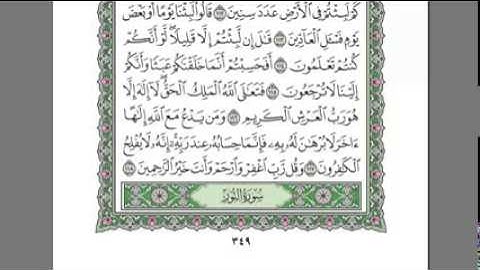 كَمْ لَبِثْتُمْ فِي ٱلْأَرْضِ عَدَدَ سِنِينَ ۝١١٢ قَالُوا۟ لَبِثْنَا يَوْمًا أَوْ بَعْضَ
يَوْمٍ فَسْـَٔلِ ٱلْعَآدِّينَ ۝١١٣ قَٰلَ إِن لَّبِثْتُمْ إِلَّا قَلِيلًا لَّوْ أَنَّكُمْ
كُنتُمْ تَعْلَمُونَ ۝١١٤ أَفَحَسِبْتُمْ أَنَّمَا خَلَقْنَٰكُمْ عَبَثًا وَأَنَّكُمْ
إِلَيْنَا لَا تُرْجَعُونَ ۝١١٥ فَتَعَٰلَى ٱللَّهُ ٱلْمَلِكُ ٱلْحَقُّ لَآ إِلَٰهَ إِلَّا
هُوَ رَبُّ ٱلْعَرْشِ ٱلْكَرِيمِ ۝١١٦ وَمَن يَدْعُ مَعَ ٱللَّهِ إِلَٰهًا
ءَاخَرَ لَا بُرْهَٰنَ لَهُۥ بِهِۦ فَإِنَّمَا حِسَابُهُۥ عِندَ رَبِّهِۦٓ إِنَّهُۥ لَا يُفْلِحُ
ٱلْكَٰفِرُونَ ۝١١٧ وَقُل رَّبِّ ٱغْفِرْ وَٱرْحَمْ وَأَنتَ خَيْرُ ٱلرَّٰحِمِينَ ۝١١٨
سُورَةُ ٱلنُّورِ
٣٤٩